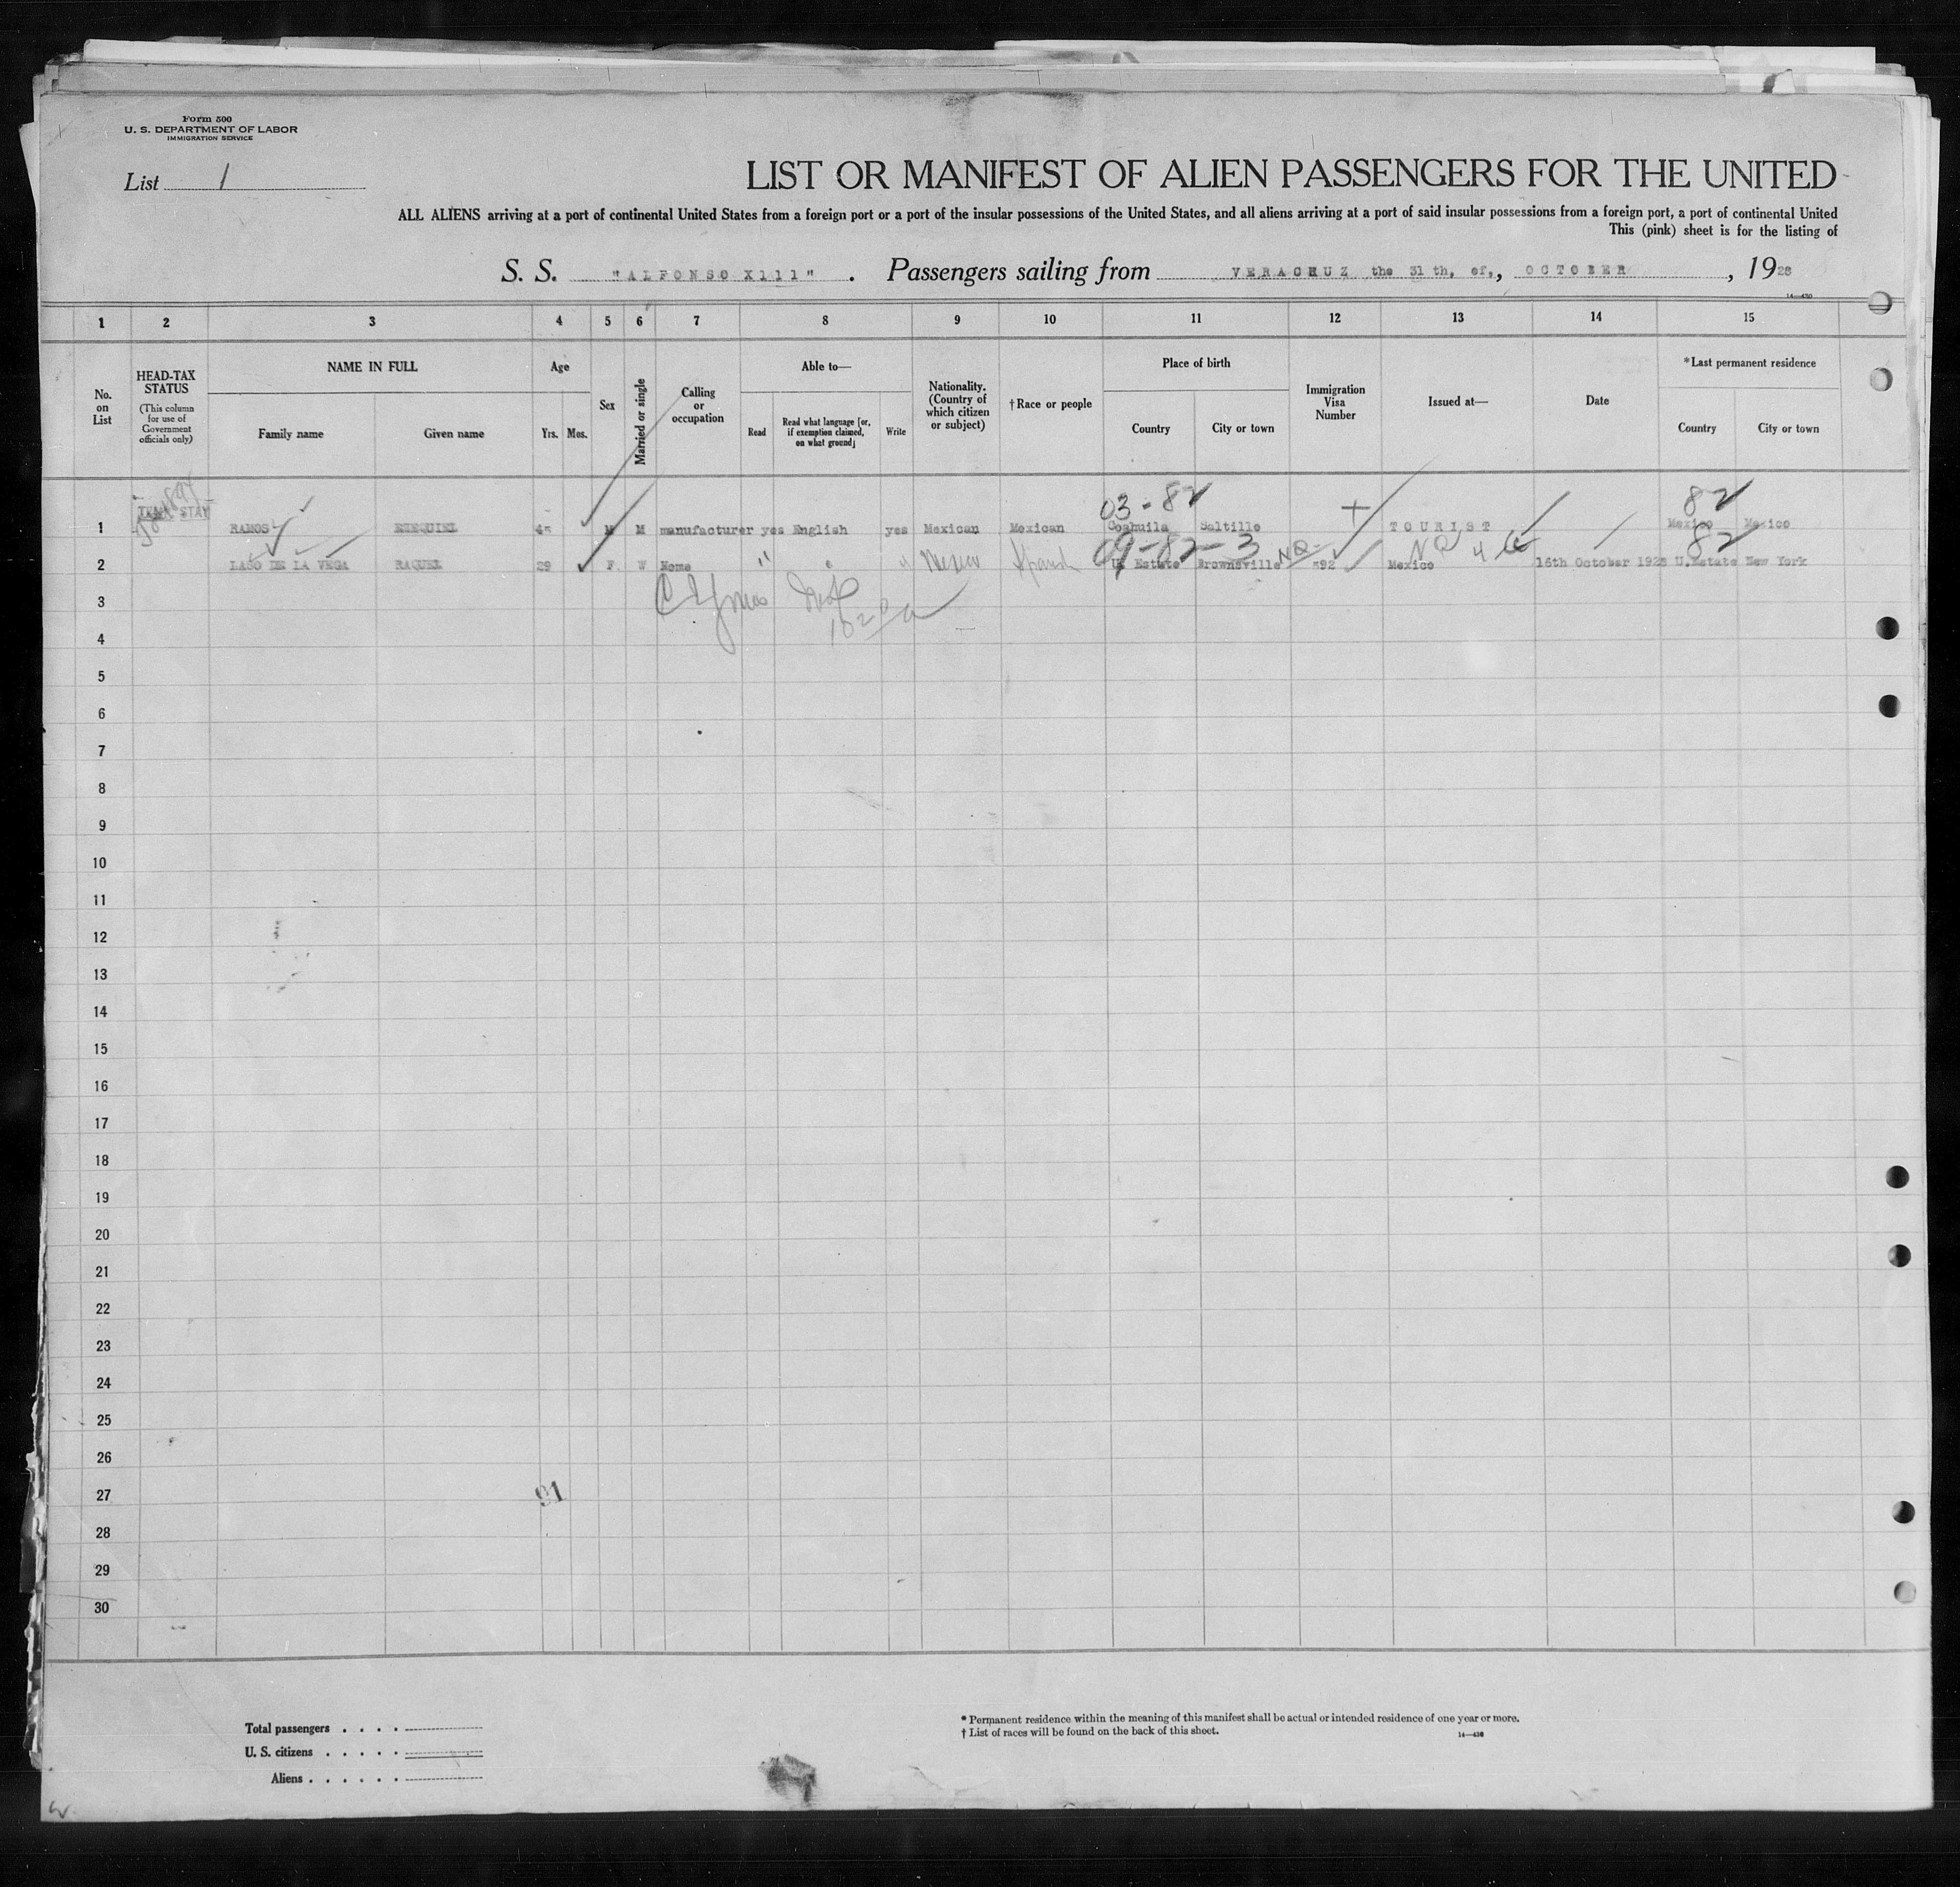 Form 500
U. S. DEPARTMENT OF LABOR
IMMIGRATION SERVICE
List 1
LIST OR MANIFEST OF ALIEN PASSENGERS FOR THE UNITED
ALL ALIENS arriving at a port of continental United States from a foreign port or a port of the insular possessions of the United States, and all aliens arriving at a port of said insular possessions from a foreign port, a port of continental United
This (pink) sheet is for the listing of
S. S. "ALFONSO X111". Passengers sailing from VERACRUZ the 31 th, of,, OCTOBER, 1928
14—430
1 2 3 4 5 6 7 8 9 10 11 12 13 14 15
No. on List
HEAD-TAX STATUS (This column for use of Government officials only)
NAME IN FULL
Family name Given name
Age
Yrs. Mos.
Sex
Married or single
Calling or occupation
Able to—
Read
Read what language [or, if exemption claimed, on what ground]
Write
Nationality. (Country of which citizen or subject)
†Race or people
Place of birth
Country City or town
Immigration Visa Number
Issued at—
Date
*Last permanent residence
Country City or town
03-82 82
1 TEMP STAY RAMOS EZEQUIEL 45 M M manufacturer yes English yes Mexican Mexican Coahuila Saltillo TOURIST Mexico Mexico
09-82-3 NQ 82
2 LASO DE LA VEGA RAQUEL 29 F W Home " " Mexico Spanish U. Estate Brownsville 592 Mexico 16th October 1928 U.Estate New York
3
4
5
6
7
8
9
10
11
12
13
14
15
16
17
18
19
20
21
22
23
24
25
26
27 91
28
29
30
Total passengers . . . .
U. S. citizens . . . . .
Aliens . . . . . .
* Permanent residence within the meaning of this manifest shall be actual or intended residence of one year or more.
† List of races will be found on the back of this sheet.
14—430